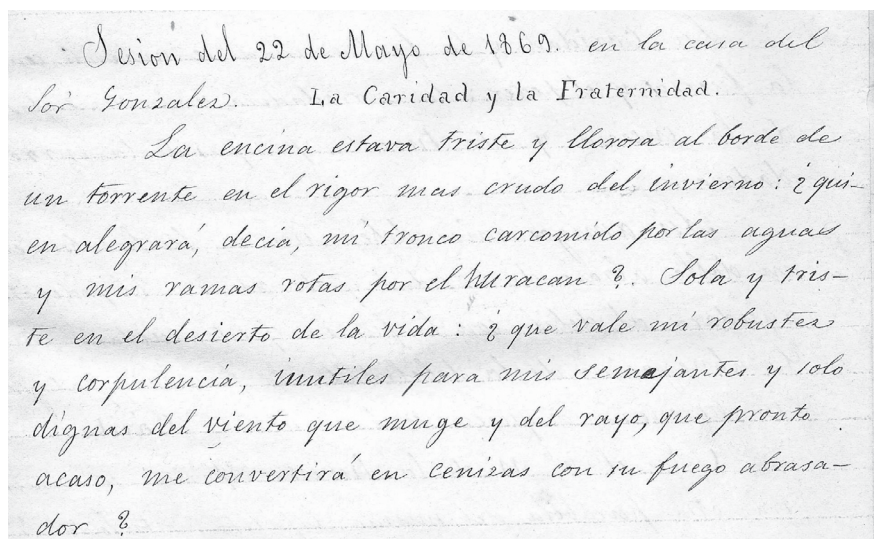 Sesion del 22 de Mayo de 1869. en la casa del
Sor Gonzales. La Caridad y la Fraternidad.
La encina estava triste y llorosa al borde de
un torrente en el rigor mas crudo del invierno: ¿qui-
en alegrará, decia, mi tronco carcomido por las aguas
y mis ramas rotas por el huracan?. Sola y tris-
te en el desierto de la vida: ¿que vale mi robustez
y corpulencia, inutiles para mis semejantes y solo
dignas del viento que muge y del rayo, que pronto
acaso, me convertirá en cenizas con su fuego abrasa-
dor?